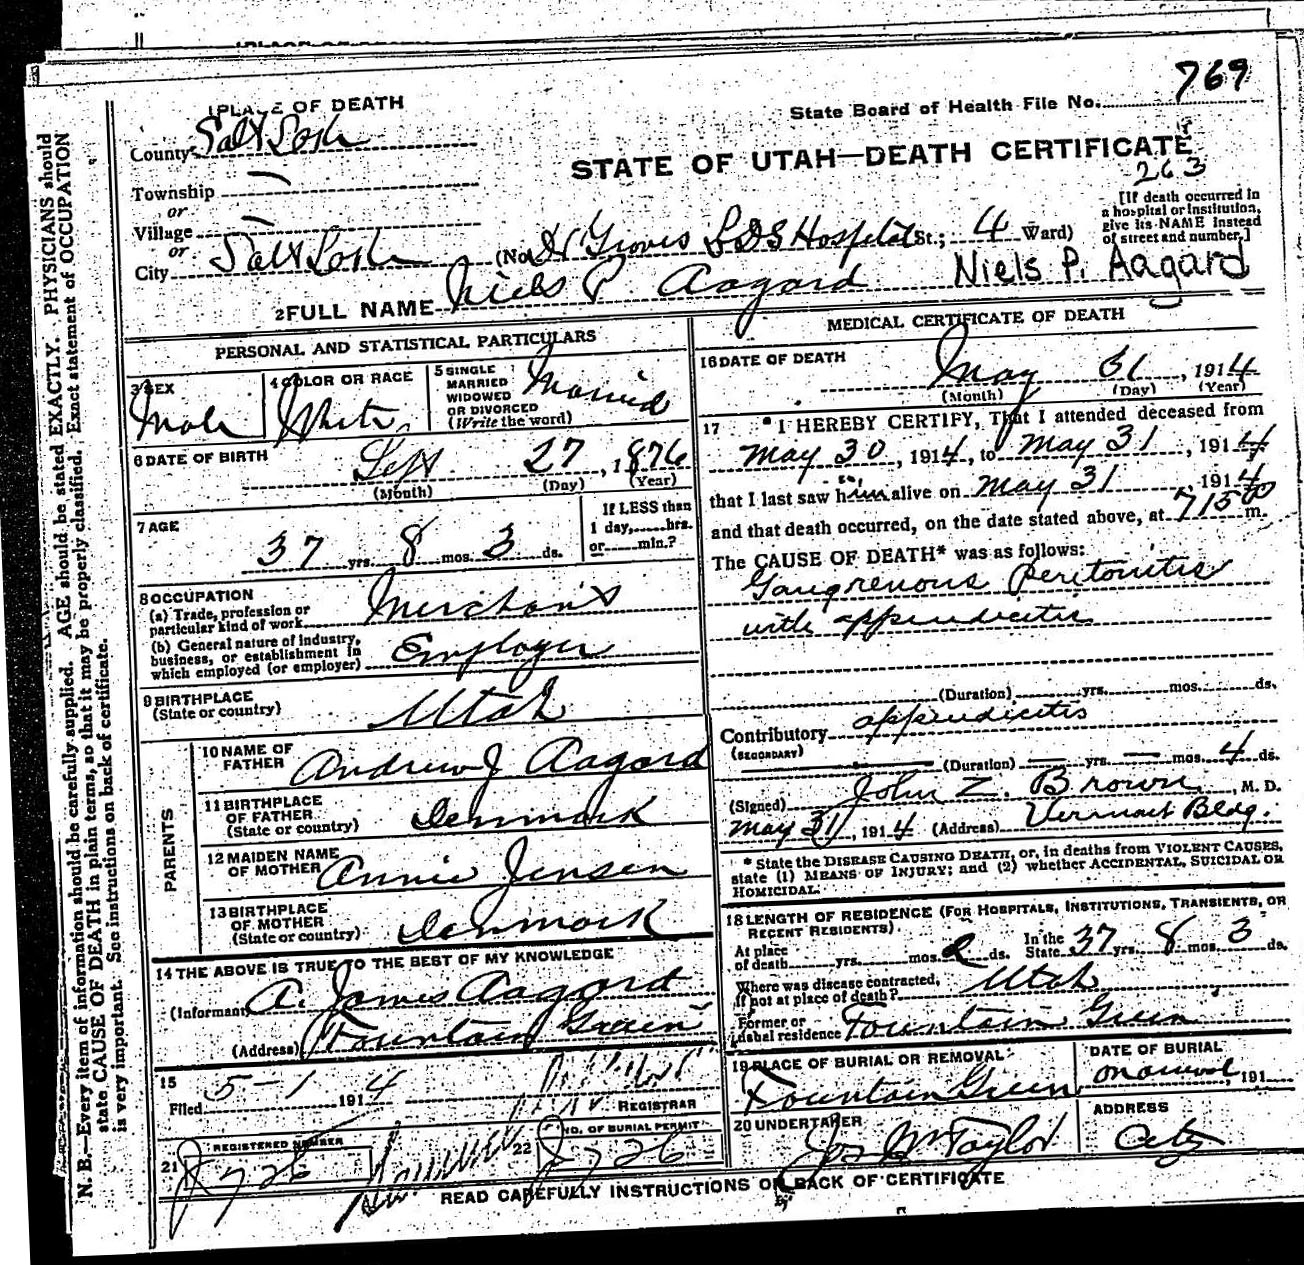 1 PLACE OF DEATH
State Board of Health File No. 769
County Salt Lake
STATE OF UTAH—DEATH CERTIFICATE
263
Township —
or
Village —
or
City Salt Lake (No. Groves L D S Hospital St.; 4 Ward)
[If death occurred in a hospital or institution, give its NAME instead of street and number.]
2 FULL NAME Niels P. Aagard Niels P. Aagard
PERSONAL AND STATISTICAL PARTICULARS
3 SEX Male
4 COLOR OR RACE White
5 SINGLE MARRIED WIDOWED OR DIVORCED (Write the word) Married
6 DATE OF BIRTH Sept 27, 1876
(Month) (Day) (Year)
7 AGE 37 yrs. 8 mos. 3 ds.
If LESS than 1 day,......hrs. or......min.?
8 OCCUPATION
(a) Trade, profession or particular kind of work Merchant
(b) General nature of industry, business, or establishment in which employed (or employer) Employer
9 BIRTHPLACE (State or country) Utah
PARENTS
10 NAME OF FATHER Andrew J Aagard
11 BIRTHPLACE OF FATHER (State or country) Denmark
12 MAIDEN NAME OF MOTHER Annie Jensen
13 BIRTHPLACE OF MOTHER (State or country) Denmark
14 THE ABOVE IS TRUE TO THE BEST OF MY KNOWLEDGE
(Informant) A. James Aagard
(Address) Fountain Green
15
Filed 5-1 1914
REGISTRAR
21 REGISTERED NUMBER J726
22 NO. OF BURIAL PERMIT J726
MEDICAL CERTIFICATE OF DEATH
16 DATE OF DEATH May 31, 1914
(Month) (Day) (Year)
17 * I HEREBY CERTIFY, That I attended deceased from
May 30, 1914, to May 31, 1914
that I last saw him alive on May 31, 1914
and that death occurred, on the date stated above, at 715 P m.
The CAUSE OF DEATH* was as follows:
Gangrenous peritonitis
with appendicitis
(Duration) yrs. mos. ds.
Contributory appendicitis
(SECONDARY)
(Duration) — yrs. — mos. 4 ds.
(Signed) John Z. Brown, M. D.
May 31, 1914 (Address) Vermont Bldg.
* State the DISEASE CAUSING DEATH, or, in deaths from VIOLENT CAUSES,
state (1) MEANS OF INJURY; and (2) whether ACCIDENTAL, SUICIDAL OR
HOMICIDAL.
18 LENGTH OF RESIDENCE (FOR HOSPITALS, INSTITUTIONS, TRANSIENTS, OR
RECENT RESIDENTS).
At place of death yrs. mos. 2 ds. In the State 37 yrs. 8 mos. 3 ds.
Where was disease contracted, if not at place of death? Utah
Former or usual residence Fountain Green
19 PLACE OF BURIAL OR REMOVAL Fountain Green
DATE OF BURIAL 191
20 UNDERTAKER Jos Wm Taylor
ADDRESS City
READ CAREFULLY INSTRUCTIONS ON BACK OF CERTIFICATE
N. B.—Every item of information should be carefully supplied. AGE should be stated EXACTLY. PHYSICIANS should
state CAUSE OF DEATH in plain terms, so that it may be properly classified. Exact statement of OCCUPATION
is very important. See instructions on back of certificate.